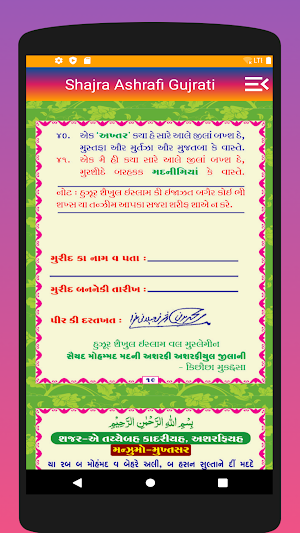 LTE
Shajra Ashrafi Gujrati
૪૦. એક 'અખ્તર' ક્યા હે સારે આલે જીલાં બખ્શ દે,
મુસ્તફા ઔર મુર્તઝા ઔર મુજતબા કે વાસ્તે.
૪૧. એક મૈં હી ક્યા સારે આલે જીલાં બખ્શ દે,
મુરશીદે બરહક્ક મદનીમિયાં કે વાસ્તે.
નોટ : હુઝૂર શૈખુલ ઇસ્લામ કી ઇજાઝત બગૈર કોઈ ભી
શખ્સ યા તન્ઝીમ આપકા સજરા શરીફ શાએ ન કરે.
મુરીદ કા નામ વ પતા :
મુરીદ બનનેકી તારીખ :
પીર કી દસ્તખત :
હુઝૂર શૈખુલ ઇસ્લામ વલ મુસ્લેમીન
સૈયદ મોહમ્મદ મદની અશરફી અશરફીયુલ જીલાની
- કિછૌછા મુકદ્દસા
૧૯
بِسْمِ اللهِ الرَّحْمٰنِ الرَّحِيْمِ
શજર-એ તય્યેબહ કાદરીયહ, અશરફિયહ
મન્ઝુમો-મુખ્તસર
યા રબ બ મોહમદ વ બેહરે અલી, બ હસન સુલ્તાને દીં મદદે